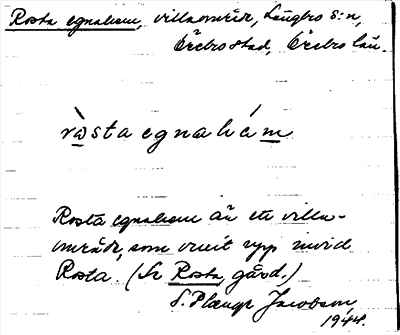 Rosta egnahem, villaområde, Längbro s:n,
Örebro stad, Örebro län.
ròstaegnahém
Rosta egnahem är ett villa-
område, som vuxit upp invid
Rosta. (Se Rosta, gård.)
Jacobson,
1944.